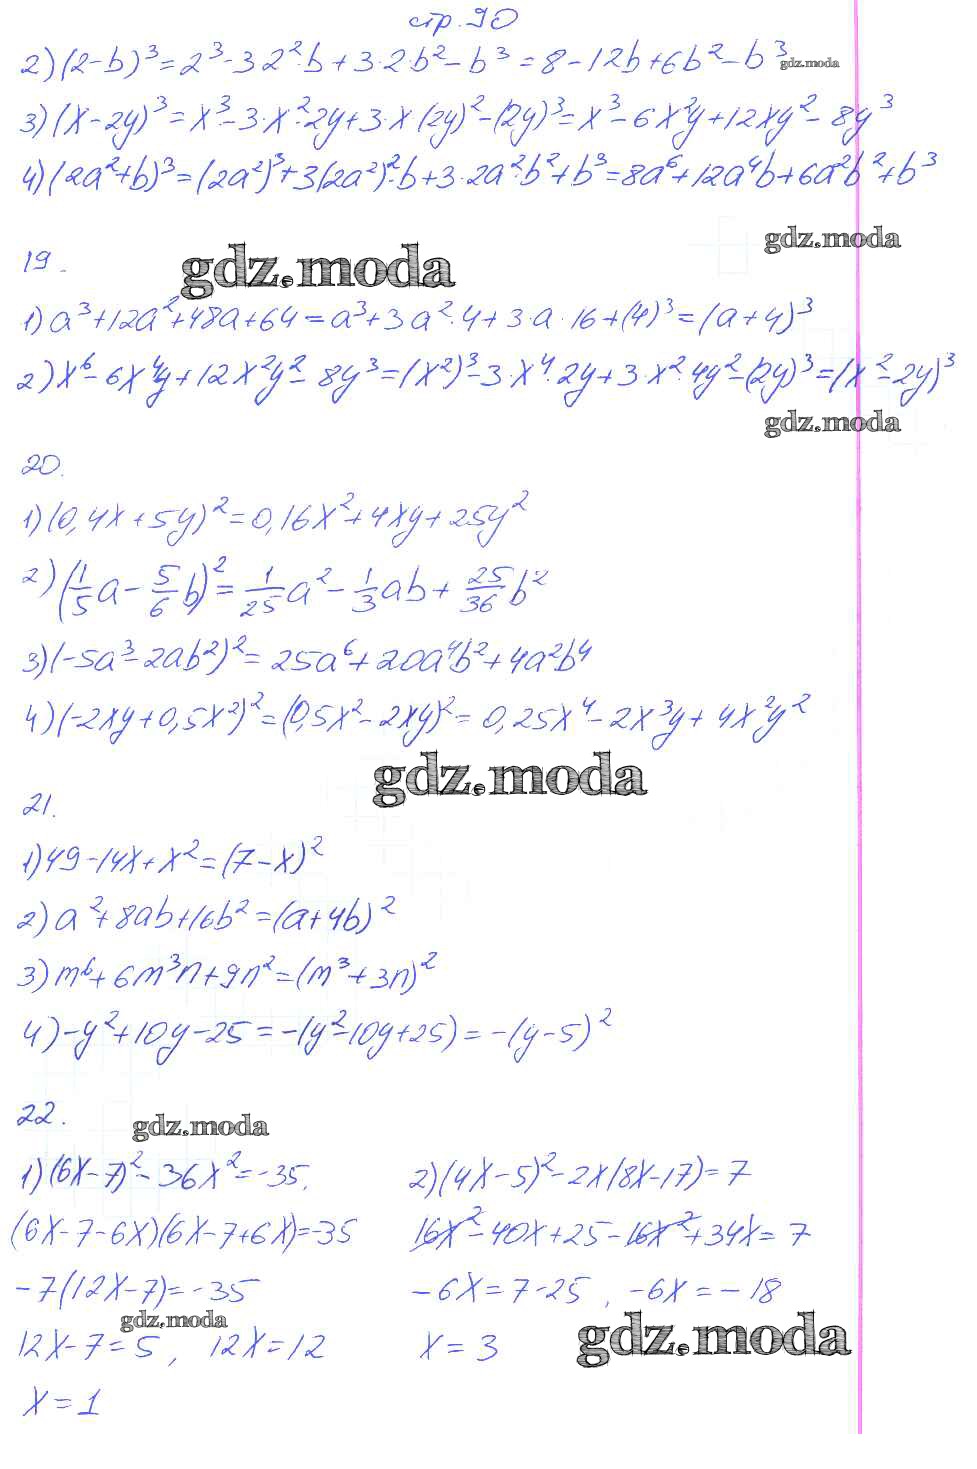 стр. 90
2) (2-b)³ = 2³ - 3·2²·b + 3·2·b² - b³ = 8 - 12b + 6b² - b³ gdz.moda
3) (x - 2y)³ = x³ - 3·x²·2y + 3·x(2y)² - (2y)³ = x³ - 6x²y + 12xy² - 8y³
4) (2a² + b)³ = (2a²)³ + 3(2a²)²·b + 3·2a²·b² + b³ = 8a⁶ + 12a⁴b + 6a²b² + b³
gdz.moda
19.
gdz.moda
1) a³ + 12a² + 48a + 64 = a³ + 3a²·4 + 3·a·16 + (4)³ = (a + 4)³
2) x⁶ - 6x⁴y + 12x²y² - 8y³ = (x²)³ - 3·x⁴·2y + 3·x²·4y² - (2y)³ = (x² - 2y)³
gdz.moda
20.
1) (0,4x + 5y)² = 0,16x² + 4xy + 25y²
2) (1/5 a - 5/6 b)² = 1/25 a² - 1/3 ab + 25/36 b²
3) (-5a³ - 2ab²)² = 25a⁶ + 20a⁴b² + 4a²b⁴
4) (-2xy + 0,5x²)² = (0,5x² - 2xy)² = 0,25x⁴ - 2x³y + 4x²y²
gdz.moda
21.
1) 49 - 14x + x² = (7 - x)²
2) a² + 8ab + 16b² = (a + 4b)²
3) m⁶ + 6m³n + 9n² = (m³ + 3n)²
4) -y² + 10y - 25 = -(y² - 10y + 25) = -(y - 5)²
22.
gdz.moda
1) (6x - 7)² - 36x² = -35.
(6x - 7 - 6x)(6x - 7 + 6x) = -35
-7(12x - 7) = -35
gdz.moda
12x - 7 = 5, 12x = 12
x = 1
2) (4x - 5)² - 2x(8x - 17) = 7
16x² - 40x + 25 - 16x² + 34x = 7
-6x = 7 - 25, -6x = -18
x = 3
gdz.moda